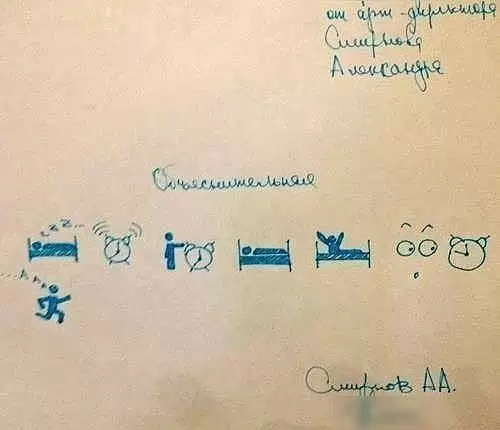 от арт-директора
Смирнова
Александра
Объяснительная
z z z...
...АААА
Смирнов АА.